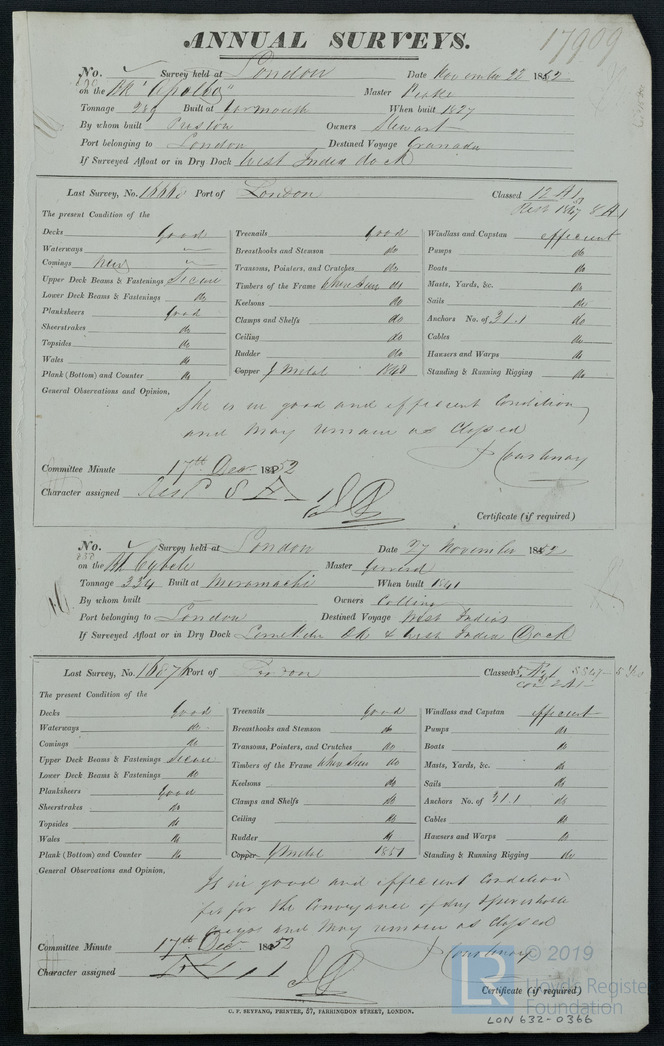 17909
ANNUAL SURVEYS.
No. Survey held at London Date November 22 1852
on the Bk "Apollo" Master
Tonnage Built at Yarmouth When built 1827
By whom built Preston Owners Stewart
Port belonging to London Destined Voyage Granada
If Surveyed Afloat or in Dry Dock West India dock
Last Survey, No. Port of London Classed 12 A1
The present Condition of the
Decks Good Treenails Good Windlass and Capstan efficient
Waterways Breasthooks and Stemson do Pumps do
Comings New Transoms, Pointers, and Crutches do Boats do
Upper Deck Beams & Fastenings Secure Timbers of the Frame when seen do Masts, Yards, &c. do
Lower Deck Beams & Fastenings do Keelsons do Sails do
Planksheers Good Clamps and Shelfs do Anchors No. of 3.1.1 do
Sheerstrakes do Ceiling do Cables do
Topsides do Rudder do Hawsers and Warps do
Wales do Copper Y Metal 1848 Standing & Running Rigging do
Plank (Bottom) and Counter do
General Observations and Opinion,
She is in good and efficient Condition
and may remain as Classed
Committee Minute 17th Dec 1852
Character assigned
Certificate (if required)
No. Survey held at London Date 27 November 1852
on the Bk Cybele Master
Tonnage 334 Built at Miramachi When built 1841
By whom built Owners Collins
Port belonging to London Destined Voyage West Indies
If Surveyed Afloat or in Dry Dock Dk & West India Dock
Last Survey, No. Port of London Classed
The present Condition of the
Decks Good Treenails Good Windlass and Capstan efficient
Waterways do Breasthooks and Stemson do Pumps do
Comings do Transoms, Pointers, and Crutches do Boats do
Upper Deck Beams & Fastenings Secure Timbers of the Frame when seen do Masts, Yards, &c. do
Lower Deck Beams & Fastenings do Keelsons do Sails do
Planksheers Good Clamps and Shelfs do Anchors No. of 3.1.1 do
Sheerstrakes do Ceiling do Cables do
Topsides do Rudder do Hawsers and Warps do
Wales do Copper Y Metal 1851 Standing & Running Rigging do
Plank (Bottom) and Counter do
General Observations and Opinion,
Is in good and efficient Condition
fit for the Conveyance of dry & perishable
Cargos and may remain as Classed
Committee Minute 17th Dec 1852
Character assigned
Certificate (if required)
C. F. SEYFANG, PRINTER, 57, FARRINGDON STREET, LONDON.
LR © 2019
Lloyd's Register
Foundation
LON 632-0366